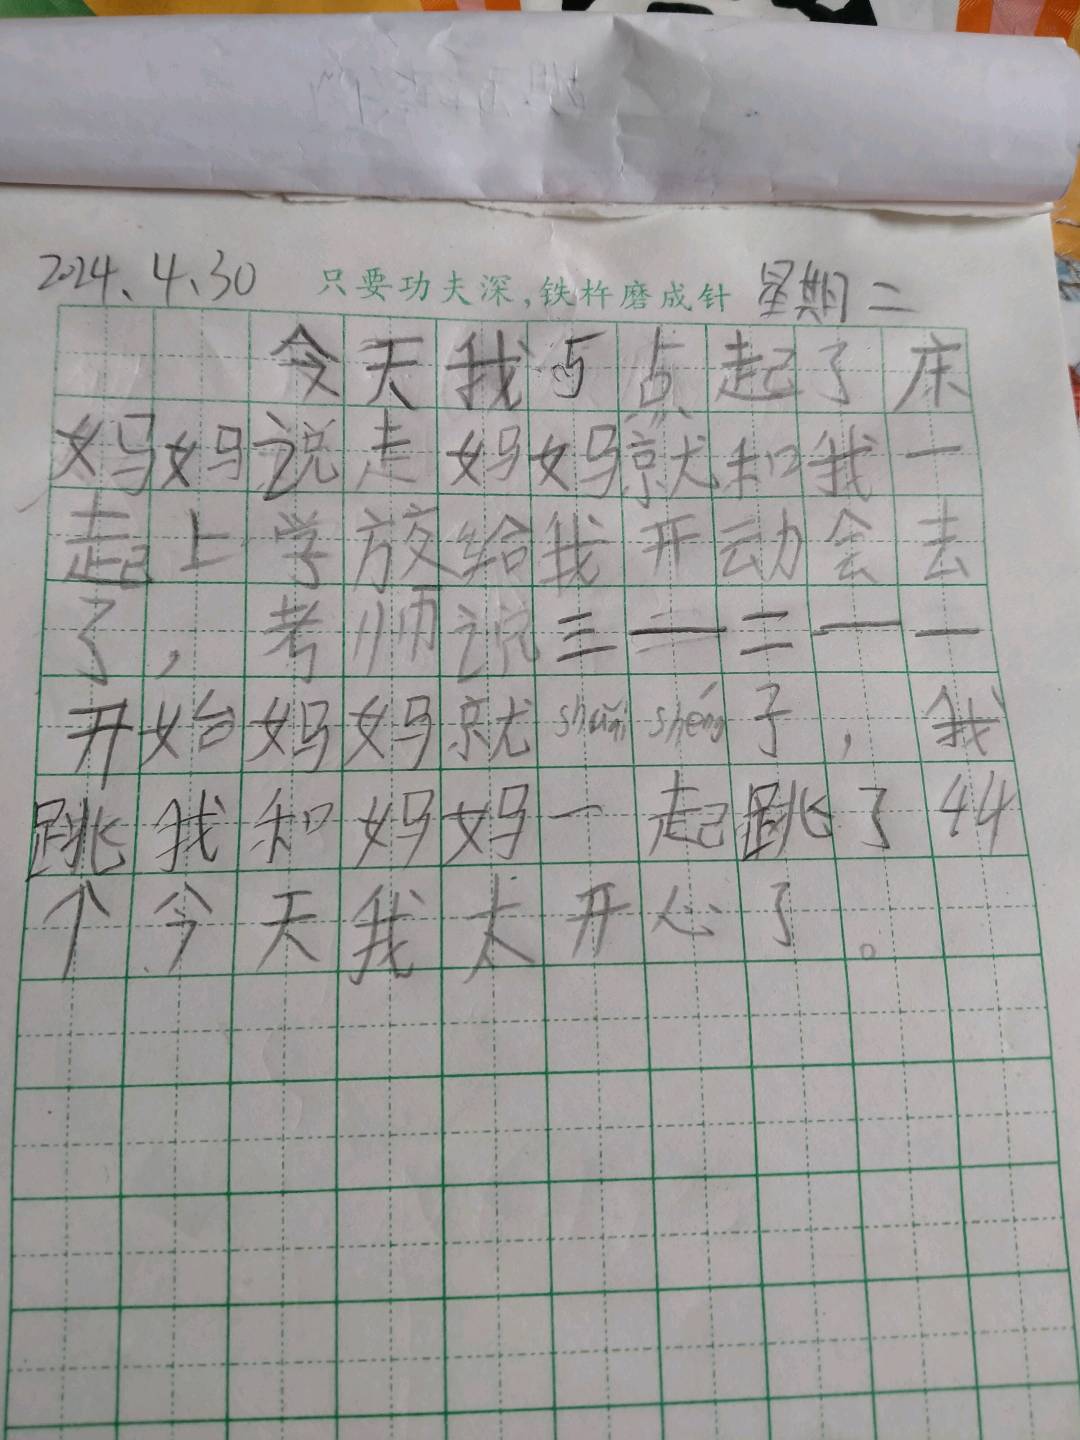 2024、4、30 只要功夫深,铁杵磨成针 星期二
今天我5点起了床
妈妈说走妈妈就和我一
起上学放给我开动会去
了,老师说三一二一一
开始妈妈就shuǎi shéng子,我
跳我和妈妈一起跳了44
个今天我太开心了。